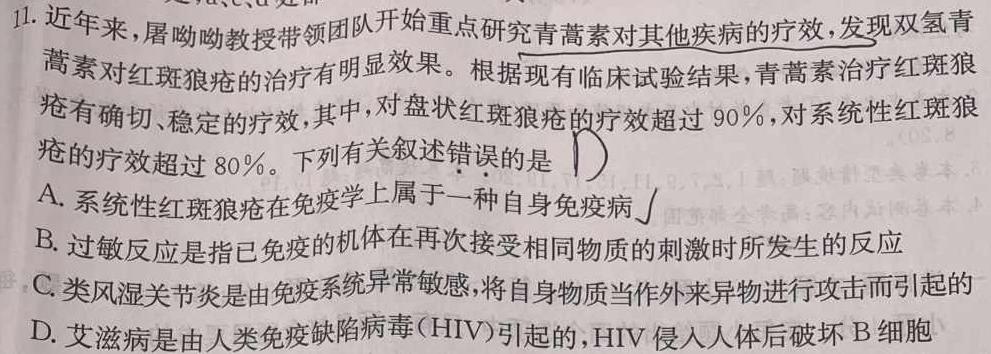 11. 近年来,屠呦呦教授带领团队开始重点研究青蒿素对其他疾病的疗效,发现双氢青
蒿素对红斑狼疮的治疗有明显效果。根据现有临床试验结果,青蒿素治疗红斑狼
疮有确切、稳定的疗效,其中,对盘状红斑狼疮的疗效超过 90%,对系统性红斑狼
疮的疗效超过 80%。下列有关叙述错误的是 D
A. 系统性红斑狼疮在免疫学上属于一种自身免疫病 √
B. 过敏反应是指已免疫的机体在再次接受相同物质的刺激时所发生的反应
C. 类风湿关节炎是由免疫系统异常敏感,将自身物质当作外来异物进行攻击而引起的
D. 艾滋病是由人类免疫缺陷病毒(HIV)引起的,HIV 侵入人体后破坏 B 细胞